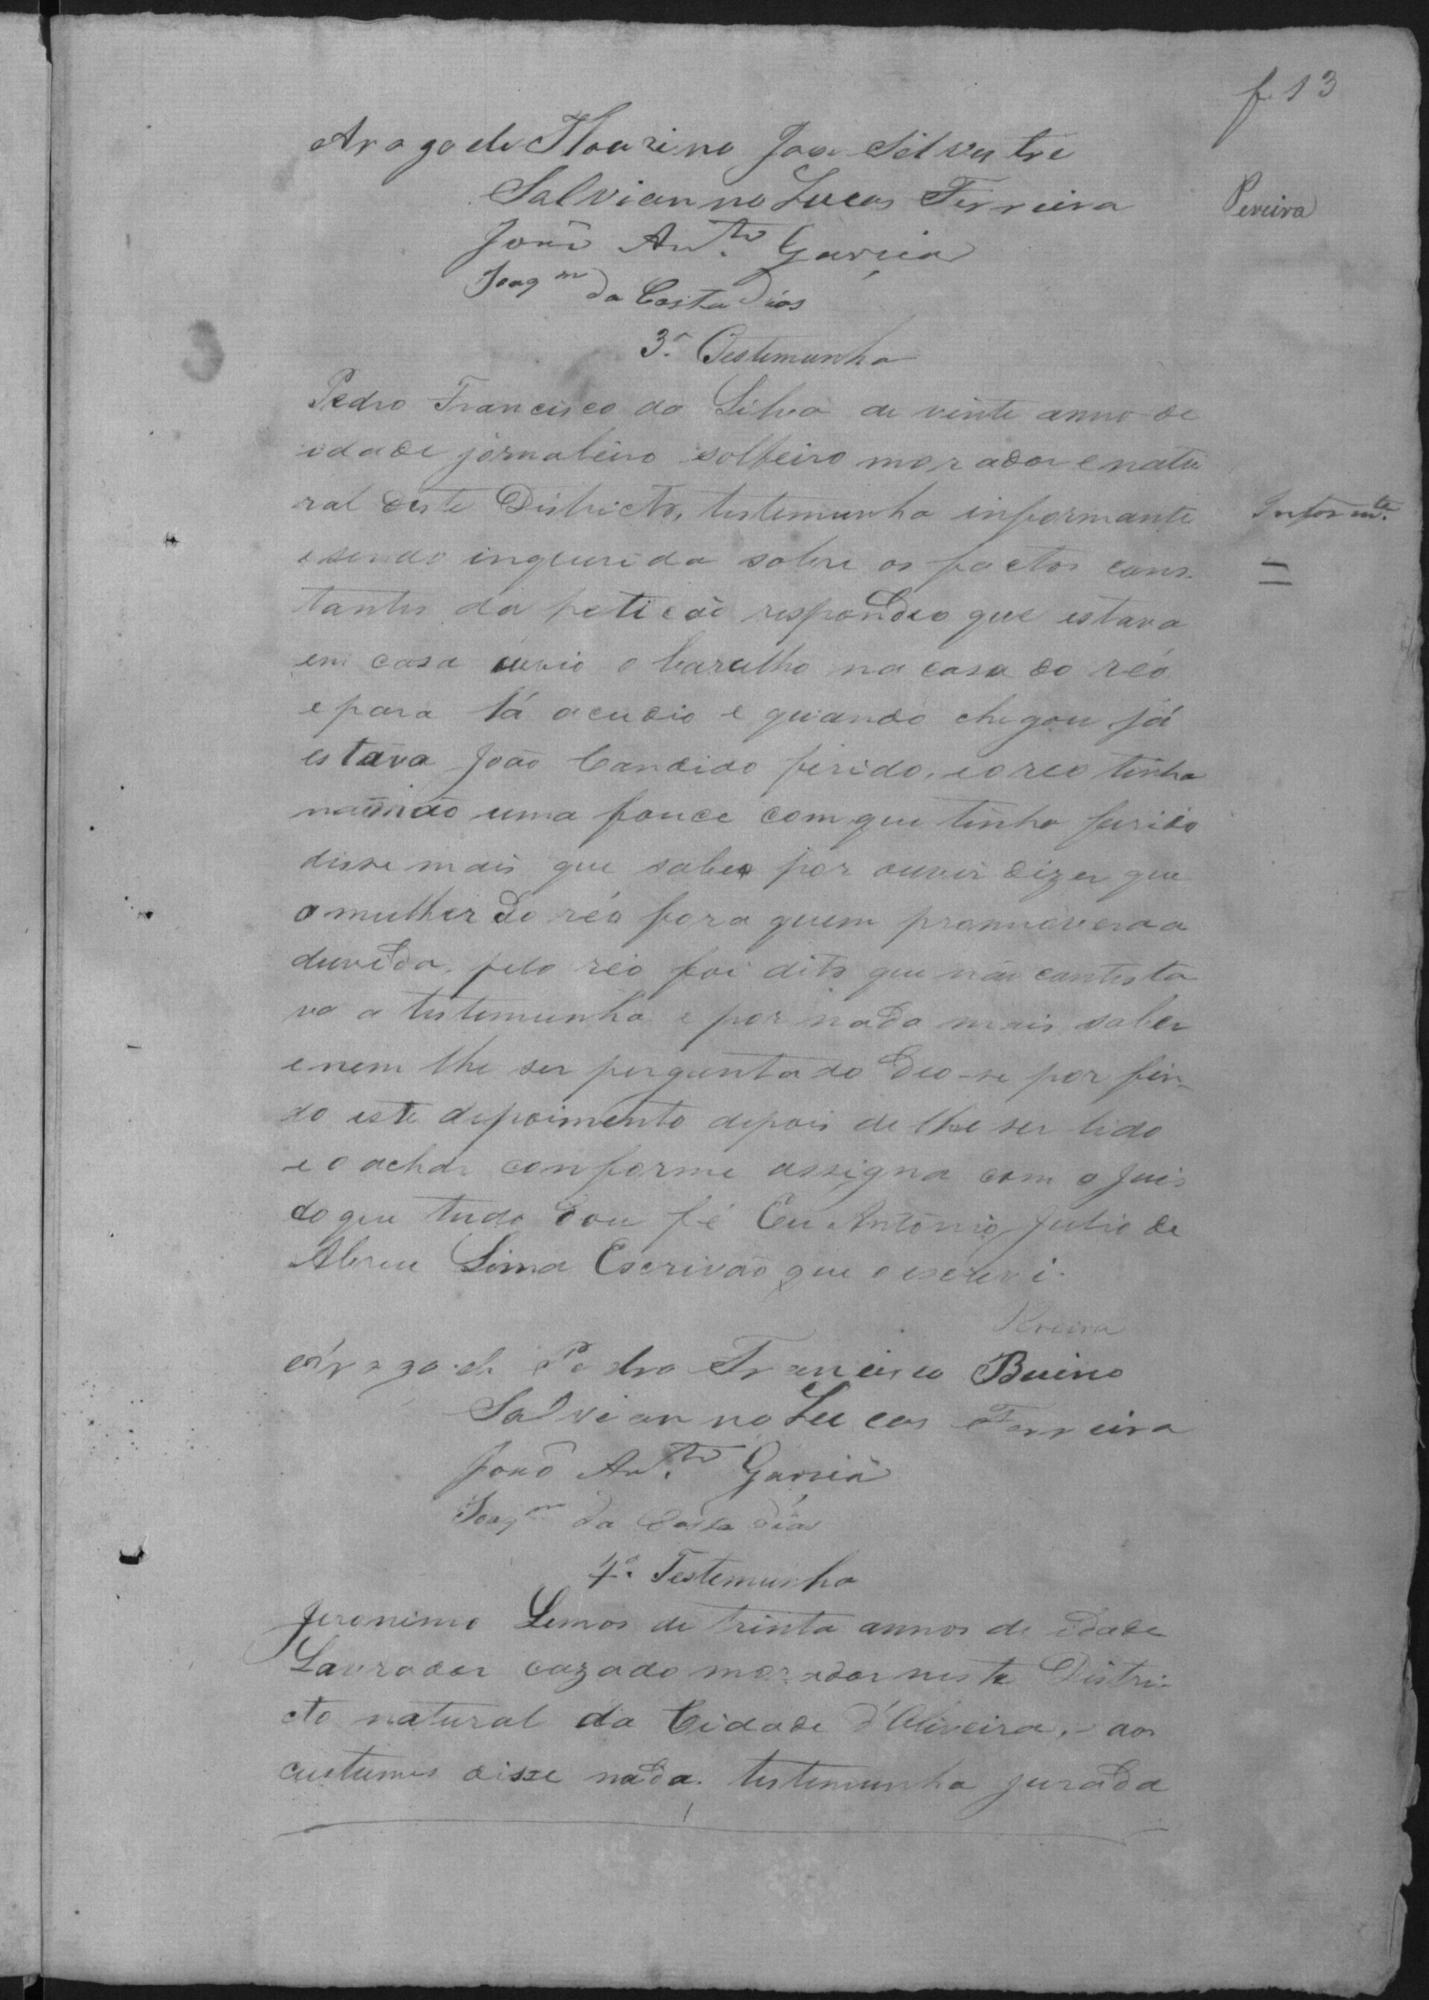 f 13
Arogo de Flourino Joze Silvestre
Salvianno Lucas Ferreira
Pereira
João An.to Garcia
Joaq.m da Costa Dias
3.ª Testemunha
Pedro Francisco da Silva de vinte anno de
idade jornaleiro solteiro morador e natu
ral deste Districto, testemunha informante
Inform.te
e sendo inquirida sobre os factos cons-
tantes da petição respondeo que estava
em casa ouvio o barulho na casa do réo
e para lá acudio e quando chegou já
estava João Candido ferido, e o reo tinha
na mão uma fouce com que tinha ferido
disse mais que sabe por ouvir dizer que
a mulher do réo fora quem promovera a
duvida. pelo réo foi dito que não contesta
va a testemunha e por nada mais saber
e nem lhe ser perguntado deo-se por fin-
do este depoimento depois de lhe ser lido
e o achar conforme assigna com o Juis
do que tudo dou fé Eu Antônio Julio de
Abreu Lima Escrivão que o escrevi.
Pereira
Arogo de Pedro Francisco Bueno
Salvianno Lucas Ferreira
João An.to Garcia
Joaq.m da Costa Dias
4.ª Testemunha
Jeronimo Lemos de trinta annos de idade
Lavrador cazado morador neste Distri-
cto natural da Cidade d'Oliveira, aos
custumes disse nada. testemunha jurada